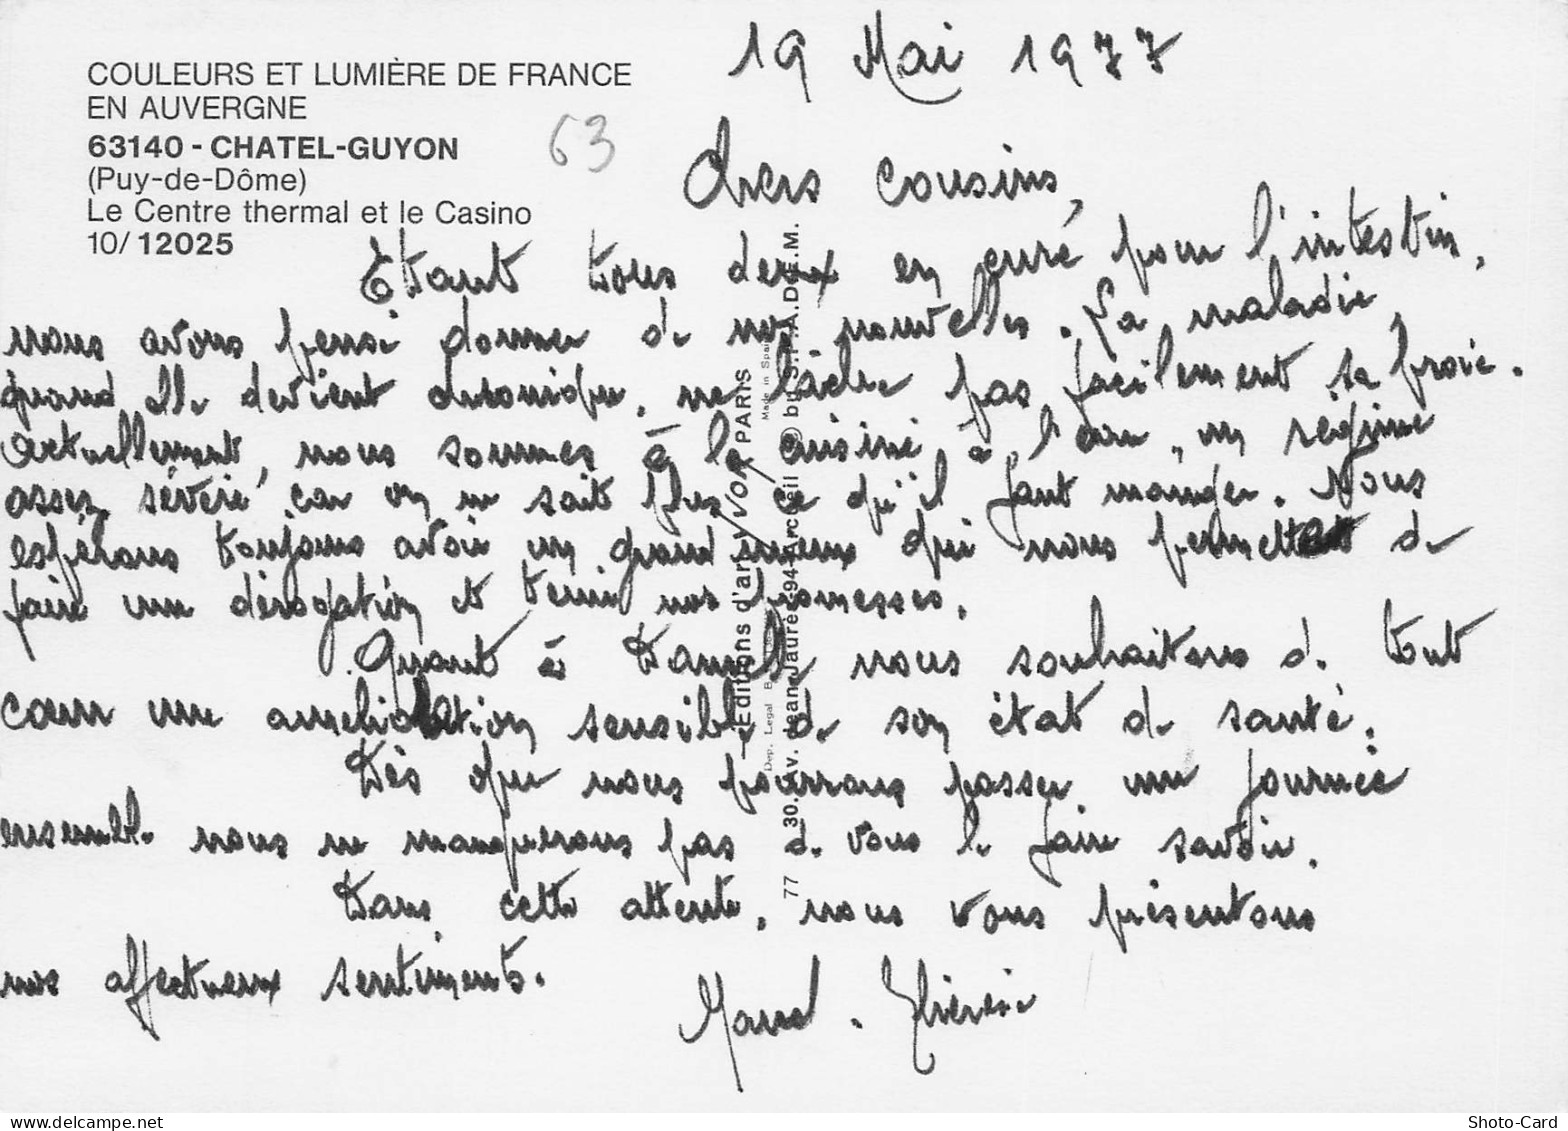 19 Mai 1977
COULEURS ET LUMIÈRE DE FRANCE
EN AUVERGNE
63140 - CHATEL-GUYON
(Puy-de-Dôme)
Le Centre thermal et le Casino
10/ 12025
63
Chers cousins,
Etant tous deux en cure pour l'intestin,
nous avons pensé donner de nos nouvelles. La maladie,
quand elle devient chronique, ne lâche pas facilement sa proie.
Actuellement, nous sommes à la cuisine à l'eau, un régime
assez sévère, car on ne sait plus ce qu'il faut manger. Nous
espérons toujours avoir un grand mieux qui nous permettrait de
faire une dérogation et tenir nos promesses.
Quant à nous souhaitons de tout
coeur une amélioration sensible de son état de santé.
Dès que nous pourrons passer une journée
ensemble nous ne manquerons pas de vous le faire savoir.
Dans cette attente, nous vous présentons
nos affectueux sentiments.
Marcel. Thérèse
Editions d'art YVON PARIS
Made in Spain
Dep. Legal B.
77 30. Av. Jean Jaurès 94-Arcueil © by S.P.A.D.E.M.
Shoto-Card
delcampe.net